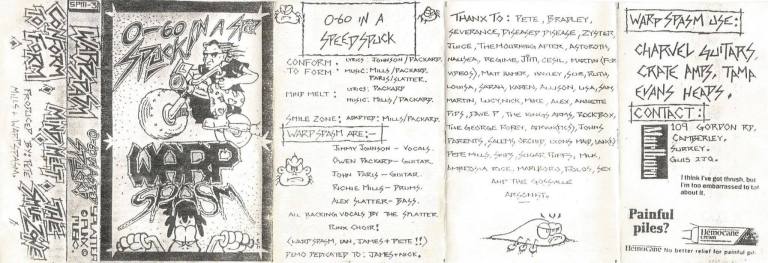 CONFORM
TO FORM
MIND MELT
THE
SMILE ZONE
PRODUCED BY: PETE
MILLS & WARP SPASM
SPM-3
WARP SPASM
0-60 IN A
0-60 IN A
SPEED
STUCK IN A
WARP
SPASM
0-60 IN A
SPEEDSTUCK
CONFORM : LYRICS: JOHNSON/PACKARD.
TO FORM : MUSIC: MILLS/PACKARD.
PARIS/SLATTER.
MIND MELT : LYRICS: PACKARD
MUSIC: MILLS/PACKARD.
SMILE ZONE: ADAPTED: MILLS/PACKARD.
WARP SPASM ARE:-
JIMMY JOHNSON - VOCALS.
OWEN PACKARD - GUITAR
JOHN PARIS - GUITAR.
RICHIE MILLS - DRUMS.
ALEX SLATTER - BASS.
ALL BACKING VOCALS BY THE SPLATTER
PUNX CHOIR!
(WARP SPASM, IAN, JAMES + PETE !!)
DEMO DEDICATED TO: JAMES + NICK.
THANX TO: PETE, BRADLEY,
SEVERANCE, DISEASED DISEASE, ZYSTER,
JUICE, THE MOURNING AFTER, ASTOROTH,
NAUSEA, REGIME, JIM, CECIL, MARTIN (FOR
VIDEOS), MATT RAMER, HAWLEY, SUB, RUTH,
LOUISA, SARAH, KAREN, ALLISON, LISA, SAM,
MARTIN, LUCY, NICK, MIKE, ALEX, ANNETTE
FIPS, DAVE P, THE KINGS ARMS, ROCKBOX,
THE GEORGE, JOHNS
PARENTS, SALEMS ORCHID,
PETE MILLS, SHIPS, SUGAR PUFFS, MILK,
AMBROSIA RICE, MARLBORO, ROLOS, SEX
AND THE
ARSONIST.
WARP SPASM USE:
CHARVEL GUITARS.
CRATE AMPS, TAMA
EVANS HEADS.
CONTACT:
Marlboro
109 GORDON RD.
CAMBERLEY.
SURREY.
GU15 2JQ.
I think I've got thrush, but
I'm too embarrassed to tal
about it.
Painful
piles?
Hemocane
CREAM
Hemocane No better relief for painful pil